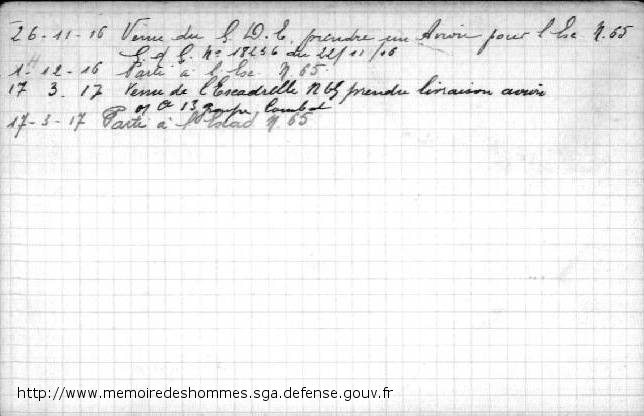 26-11-16 Venu du G. D. E. prendre un Avion pour l'Esc N. 65
G. Q. G. No 18236 du 22/11/16
1-12-16 Parti à l'Esc. N 65
17 3. 17 Venu de l'Escadrille N 65 prendre livraison avion
13 groupe Combat
17-3-17 Parti à l'Escad N. 65
http://www.memoiredeshommes.sga.defense.gouv.fr